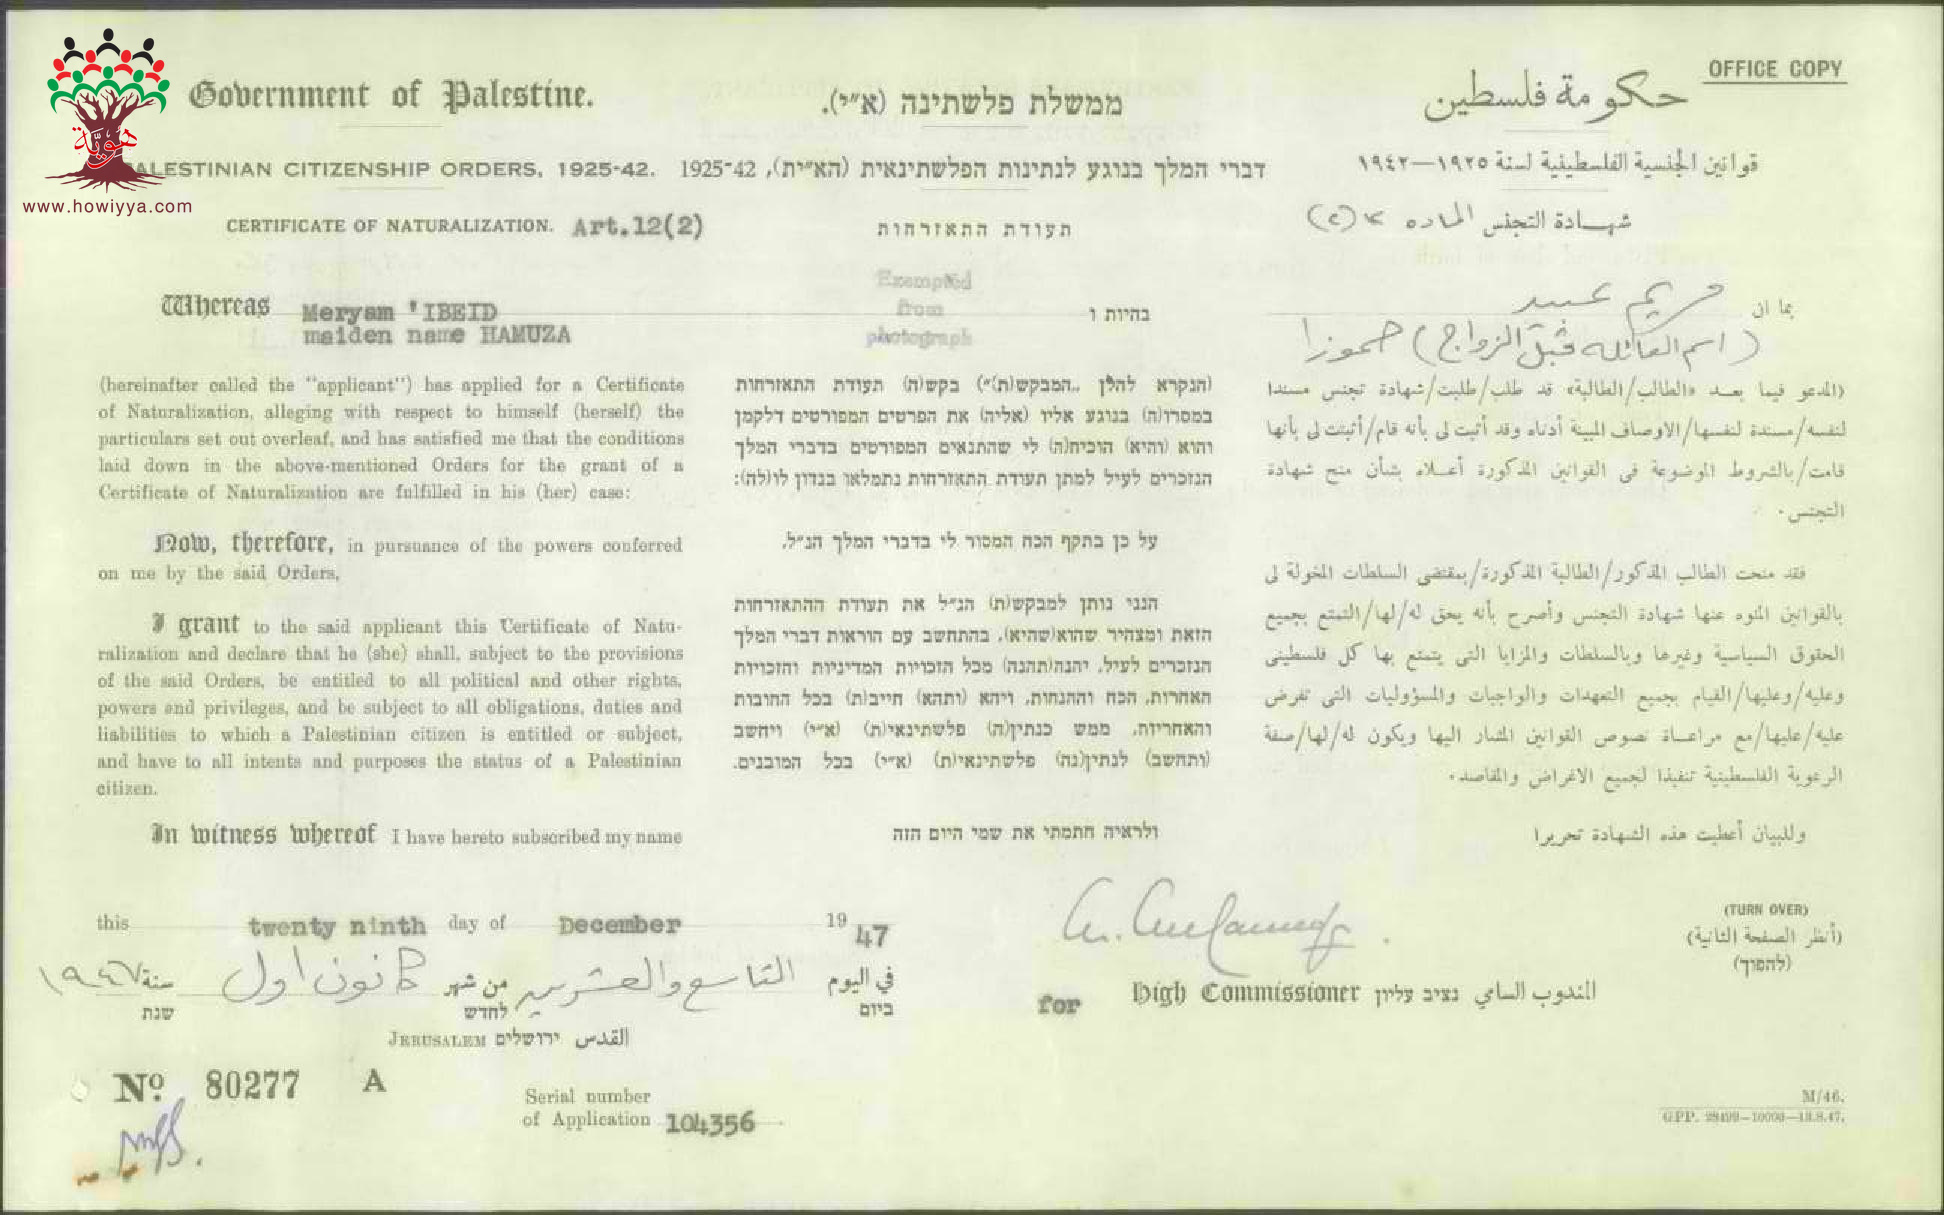 OFFICE COPY
هوية
www.howiyya.com
Government of Palestine.
ממשלת פלשתינה (א״י).
حكومة فلسطين
PALESTINIAN CITIZENSHIP ORDERS, 1925-42.
דברי המלך בנוגע לנתינות הפלשתינאית (הא״ית), 1925-42
قوانين الجنسية الفلسطينية لسنة ١٩٢٥—١٩٤٢
CERTIFICATE OF NATURALIZATION. Art.12(2)
תעודת התאזרחות
شهادة التجنس الماده
Exempted
from
photograph
Whereas Meryam 'IBEID
maiden name HAMUZA
בהיות ו
بما ان مريم عبيد
(اسم العائله قبل الزواج) حموزا
(hereinafter called the "applicant") has applied for a Certificate
of Naturalization, alleging with respect to himself (herself) the
particulars set out overleaf, and has satisfied me that the conditions
laid down in the above-mentioned Orders for the grant of a
Certificate of Naturalization are fulfilled in his (her) case:
(הנקרא להלן „המבקש(ת)״) בקש(ה) תעודת התאזרחות
במסרו(ה) בנוגע אליו (אליה) את הפרטים המפורטים דלקמן
והוא (והיא) הוכיח(ה) לי שהתנאים המפורטים בדברי המלך
הנזכרים לעיל למתן תעודת התאזרחות נתמלאו בנדון לו(לה):
(المدعو فيما بعد «الطالب/الطالبة» قد طلب/طلبت/شهادة تجنس مسندا
لنفسه/مسندة لنفسها/الاوصاف المبينة أدناه وقد أثبت لى بأنه قام/أثبتت لى بأنها
قامت/بالشروط الموضوعة فى القوانين المذكورة أعلاه بشأن منح شهادة
التجنس٠
Now, therefore, in pursuance of the powers conferred
on me by the said Orders,
על כן בתקף הכח המסור לי בדברי המלך הנ״ל,
I grant to the said applicant this Certificate of Natu-
ralization and declare that he (she) shall, subject to the provisions
of the said Orders, be entitled to all political and other rights,
powers and privileges, and be subject to all obligations, duties and
liabilities to which a Palestinian citizen is entitled or subject,
and have to all intents and purposes the status of a Palestinian
citizen.
הנני נותן למבקש(ת) הנ״ל את תעודת ההתאזרחות
הזאת ומצהיר שהוא(שהיא), בהתחשב עם הוראות דברי המלך
הנזכרים לעיל, יהנה(תהנה) מכל הזכויות המדיניות והזכויות
האחרות, הכח וההנחות, ויהא (ותהא) חייב(ת) בכל החובות
והאחריות, ממש כנתין(ה) פלשתינאי(ת) (א״י) ויחשב
(ותחשב) לנתין(נה) פלשתינאי(ת) (א״י) בכל המובנים.
فقد منحت الطالب المذكور/الطالبة المذكورة/بمقتضى السلطات المخولة لى
بالقوانين المنوه عنها شهادة التجنس وأصرح بأنه يحق له/لها/التمتع بجميع
الحقوق السياسية وغيرها وبالسلطات والمزايا التى يتمتع بها كل فلسطينى
وعليه/وعليها/القيام بجميع التعهدات والواجبات والمسؤوليات التى تفرض
عليه/عليها/مع مراعاة نصوص القوانين المشار اليها ويكون له/لها/صفة
الرعوية الفلسطينية تنفيذا لجميع الاغراض والمقاصد٠
In witness whereof I have hereto subscribed my name
ולראיה חתמתי את שמי היום הזה
وللبيان أعطيت هذه الشهادة تحريرا
this twenty ninth day of December 19 47
في اليوم التاسع والعشرين من شهر كانون اول سنة ١٩٤٧
ביום לחדש שנת
JERUSALEM ירושלים القدس
for High Commissioner נציב עליון المندوب السامي
(TURN OVER)
(أنظر الصفحة الثانية)
(להפוך)
No. 80277 A
Serial number
of Application 104356
M/46.
GPP. 28499—10000—13.8.47.